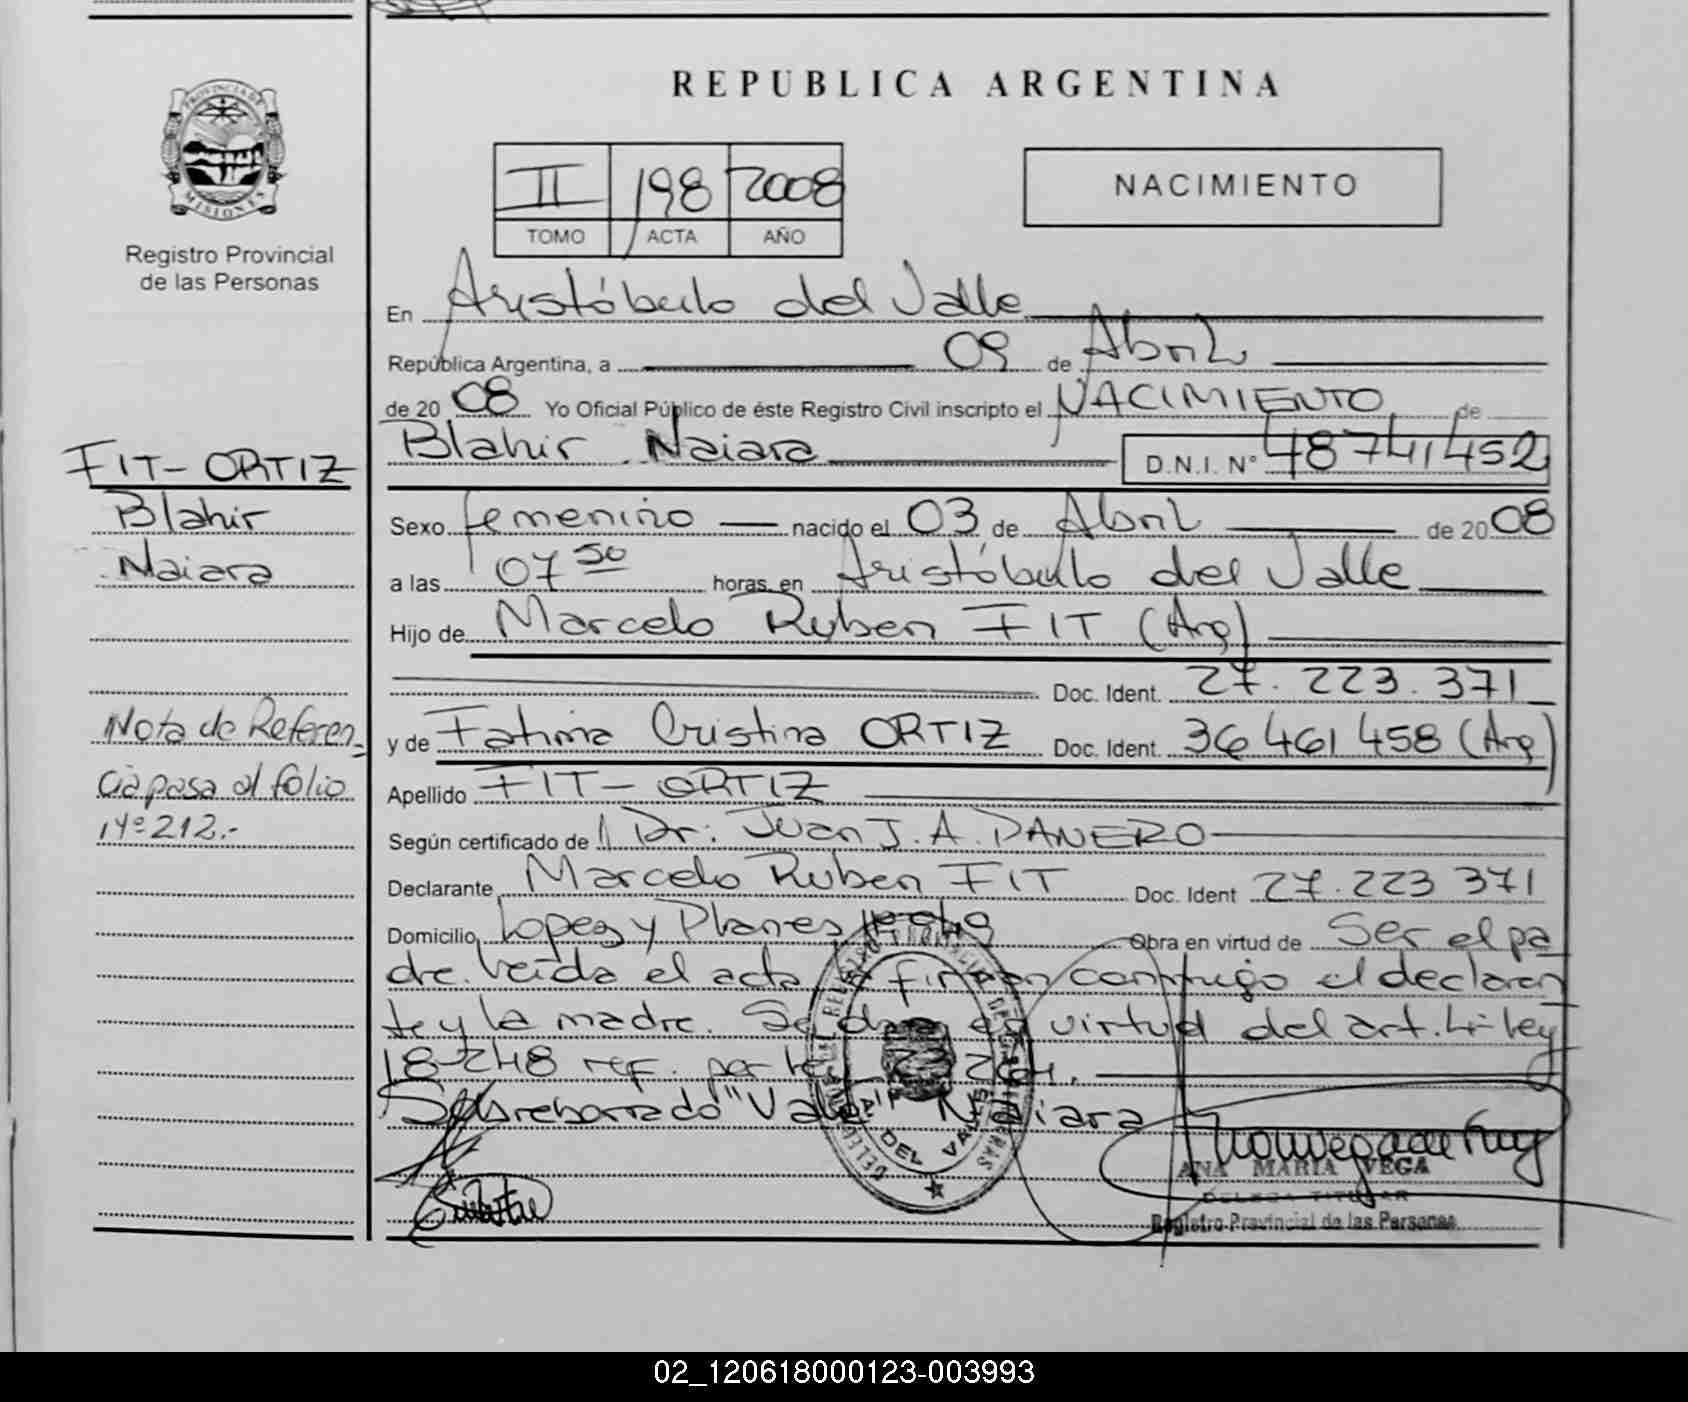 REPUBLICA ARGENTINA
PROVINCIA DE MISIONES
Registro Provincial
de las Personas
II 198 2008
TOMO ACTA AÑO
NACIMIENTO
En Aristóbulo del Valle
República Argentina, a 09 de Abril
de 20 08 Yo Oficial Público de éste Registro Civil inscripto el NACIMIENTO de
Blahir Naiara D.N.I. N° 48741452
FIT-ORTIZ
Blahir
Naiara
Sexo femenino nacido el 03 de Abril de 20 08
a las 07 50 horas en Aristóbulo del Valle
Hijo de Marcelo Ruben FIT (Arg)
Doc. Ident. 27.223.371
y de Fatima Cristina ORTIZ Doc. Ident. 36461458 (Arg)
Apellido FIT-ORTIZ
Nota de Referen-
cia pasa al folio
Nº 212.-
Según certificado de Dr: Juan J. A. DANERO
Declarante Marcelo Ruben FIT Doc. Ident 27.223 371
Domicilio Lopez y Planes Obra en virtud de Ser el pa
dre. Leída el acta firman conmigo el declaran
te y la madre. Se en virtud del art. 4- ley
18-248 ref. por ley
Sobreborrado "Vale" Naiara
DEL VALLE
ANA MARIA VEGA
DELEGA TITULAR
Registro Provincial de las Personas
02_120618000123-003993